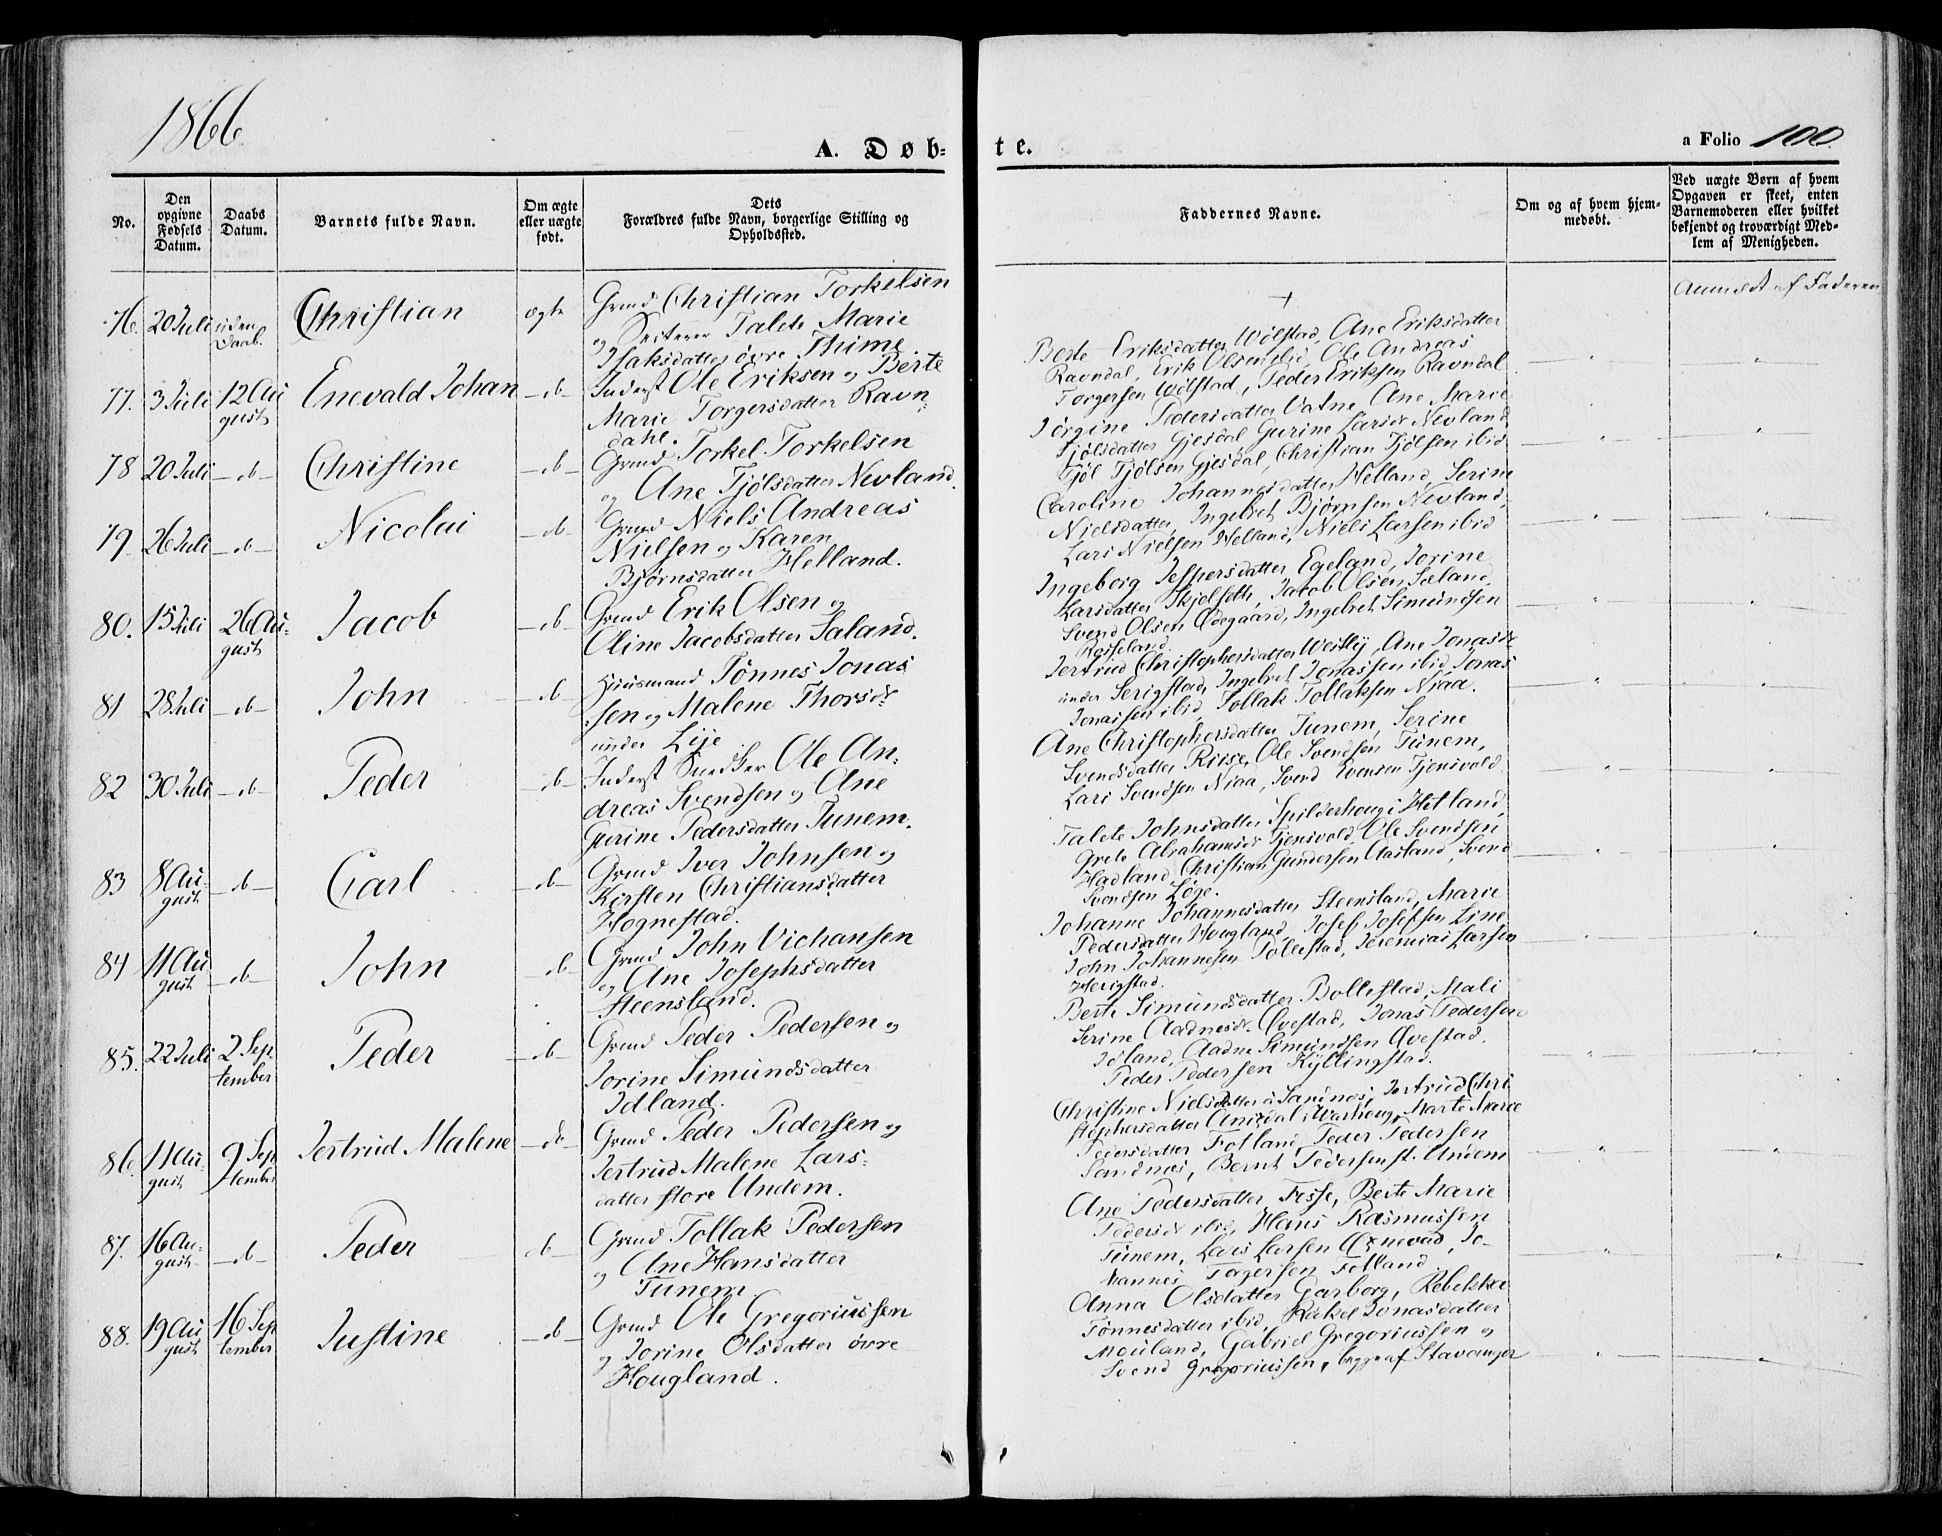 1866
A. Døb-
te.
a Folio 100
No.
Den opgivne Fødsels Datum.
Daabs Datum.
Barnets fulde Navn.
Om ægte eller uægte født.
Dets Forældres fulde Navn, borgerlige Stilling og Opholdssted.
Faddernes Navne.
Om og af hvem hjemmedøbt.
Ved uægte Børn af hvem Opgaven er skeet, enten Barnemoderen eller hvilket bekjendt og troværdigt Medlem af Menigheden.
76. 20 Juli uden Daab. Christian ægte
Grmd Christian Torkelsen
og Talete Marie
Isaksdatter øvre Thime
+
Anmeldt af Faderen
77. 3 Juli 12 August Enevald Johan -do-
Inderst Ole Eriksen og Berte
Marie Torgersdatter Ravn-
dahl.
Berte Eriksdatter Wølstad, Ane Eriksdatter
Ravndal, Erik Olsen ibid, Ole Andreas
Torgersen Wølstad, Peder Eriksen Ravndal
78 20 Juli -do- Christine -do-
Grmd Torkel Torkelsen
og Ane Tjølsdatter Nevland.
Jørgine Pedersdatter Vatne, Ane Marie
Tjølsdatter Gjesdal, Gurine Larsdr Nevland
Tjøl Tjølsen Gjesdal, Christian Tjølsen ibid
79 26 Juli -do- Nicolai -do-
Grmd Niels Andreas
Nielsen og Karen
Bjørnsdatter Helland.
Caroline Johannesdatter Helland, Serine
Nielsdatter, Ingebret Bjørnsen Nevland,
Lars Nielsen Helland, Niels Larsen ibid
80. 15 Juli 26 August Jacob -do-
Grmd Erik Olsen og
Oline Jacobsdatter Saland.
Ingeborg Jespersdatter Egeland, Jorine
Larsdatter Skjelseth, Jacob Olsen Sæland,
Svend Olsen Ødegaard, Ingebret Simundsen
Rosseland.
81 28 Juli -do- John -do-
Huusmand Tønnes Jonas-
sen og Malene Thorsdr
under Lye
Jertrud Christophersdatter Westly, Ane Jonasdr
under Serigstad, Ingebret Jonassen ibid, Jonas
Jonassen ibid, Tollak Tollaksen Njaa.
82 30 Juli -do- Peder -do-
Inderst Snedker Ole An-
dreas Svendsen og Ane
Gurine Pedersdatter Tunem.
Ane Christophersdatter Tunem, Serine
Svendsdatter Riise, Ole Svendsen Tunem,
Lars Svendsen Njaa, Svend Evensen Tjensvold
83 8 August -do- Carl -do-
Grmd Iver Johnsen og
Kirsten Christiansdatter
Hognestad.
Talete Johnsdatter Spilderhoug i Hetland,
Grete Abrahamsdr Tjensvold, Ole Svendsen
Hadland, Christian Gundersen Aasland, Svend
Svendsen Løge.
84 11 August -do- John -do-
Grmd John Vichansen
og Ane Josephsdatter
Steensland.
Johanne Johannesdatter Steensland, Marie
Pedersdatter Hougland, Josef Josefsen Line,
John Johannesen Pollestad, Jeremias Larsen
Herigstad.
85. 22 Juli 2 September Peder -do-
Grmd Peder Pedersen og
Jorine Simundsdatter
Idland.
Berte Simundsdatter Bollestad, Mali
Serine Aadnesdr Qvestad, Jonas Pedersen
Idland, Aadne Simundsen Qvestad,
Peder Pedersen Kyllingstad.
86. 11 August 9 September Jertrud Malene -do-
Grmd Peder Pedersen og
Jertrud Malene Lars-
datter store Undem.
Christine Nielsdatter i Sandnes, Jertrud Chri-
stophersdatter Anisdal i Warhoug, Marte Marie
Pedersdatter Fotland, Peder Pedersen
Sandnes, Bernt Pedersen st. Undem
87. 16 August -do- Peder -do-
Grmd Tollak Pedersen
og Ane Hansdatter
Tunem
Ane Pedersdatter Fosse, Berte Marie
Pedersdr ibid, Hans Rasmussen
Tunem, Lars Larsen Ørnevad, Jo-
hannes Torgersen Fotland
88. 19 August 16 September Justine -do-
Grmd Ole Gregoriussen
og Jorine Olsdatter øvre
Hougland.
Anna Olsdatter Garborg, Rebekka
Tønnesdatter ibid, Rakel Jonasdatter
Mouland, Gabriel Gregoriussen og
Svend Gregoriussen, begge af Stavanger